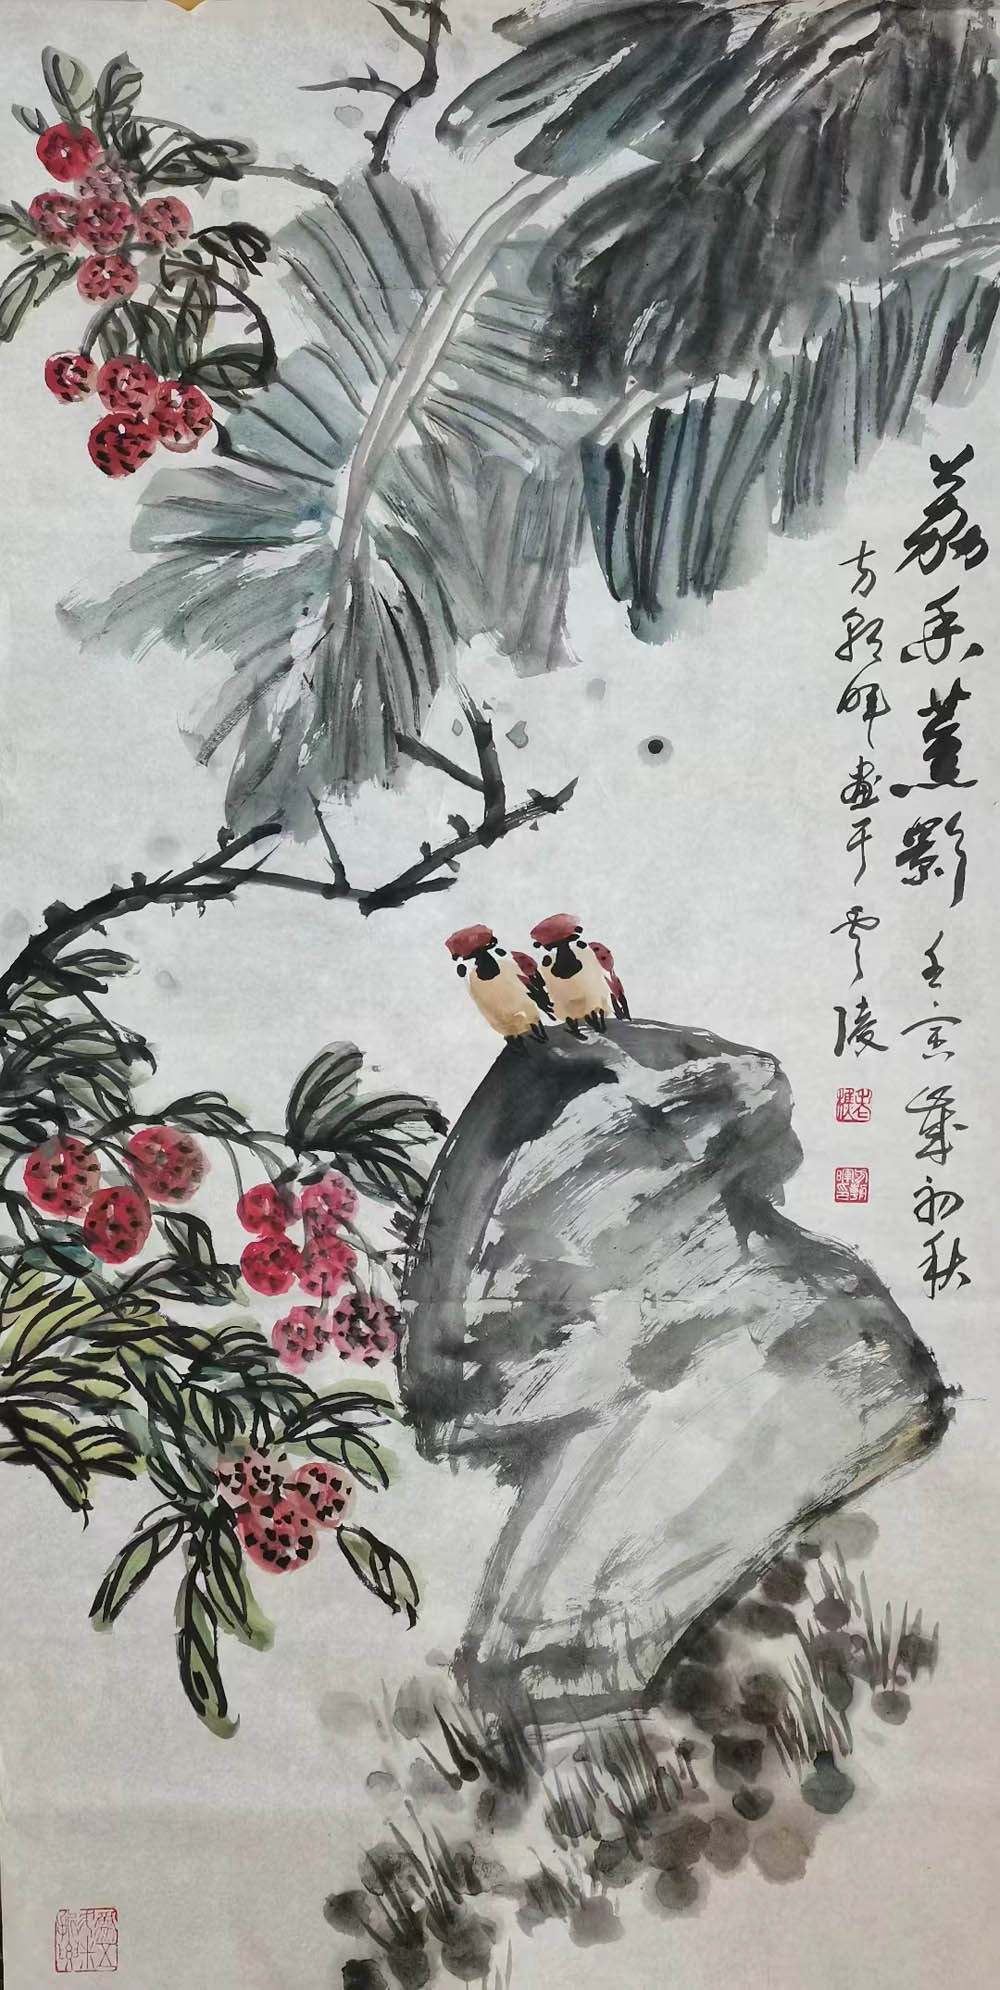 荔香蕉影 壬寅歲初秋
方朝晖畫于雲陵